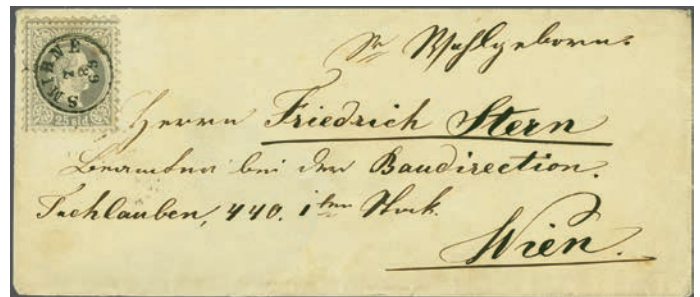 SMIRNE
2 8 69
25 sld
Sr Wohlgeborn
Herrn Friedrich Stern
Beamter bei der Baudirection.
Tuchlauben, 440. 1ten Stock.
Wien.